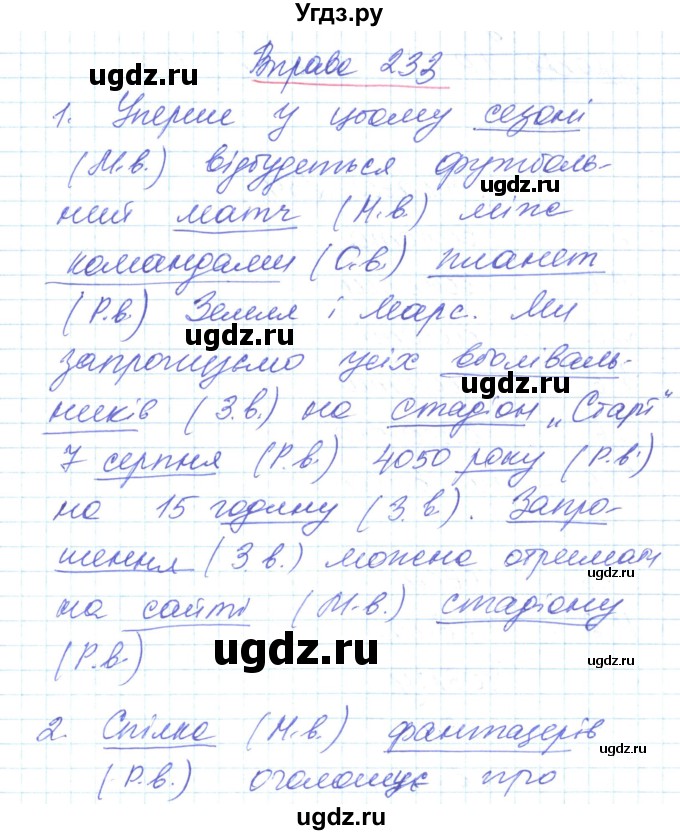 Угдз.ру
Вправа 233
ugdz.ru
1. Уперше у цьому сезоні
(М.в.) відбудеться футболь-
ugdz.ru
ний матч (Н.в.) між
командами (О.в.) планет
(Р.в.) Земля і Марс. Ми
ugdz.ru
запрошуємо усіх вболіваль-
ugdz.ru
ників (З.в.) на стадіон „Старт“
7 серпня (Р.в.) 4050 року (Р.в.)
ugdz.ru
на 15 годину (З.в.). Запро-
шення (З.в.) можна отримати
ugdz.ru
на сайті (М.в.) стадіону
ugdz.ru
(Р.в.)
ugdz.ru
2. Спілка (Н.в.) фантазерів
ugdz.ru
(Р.в.) оголошує про
ugdz.ru